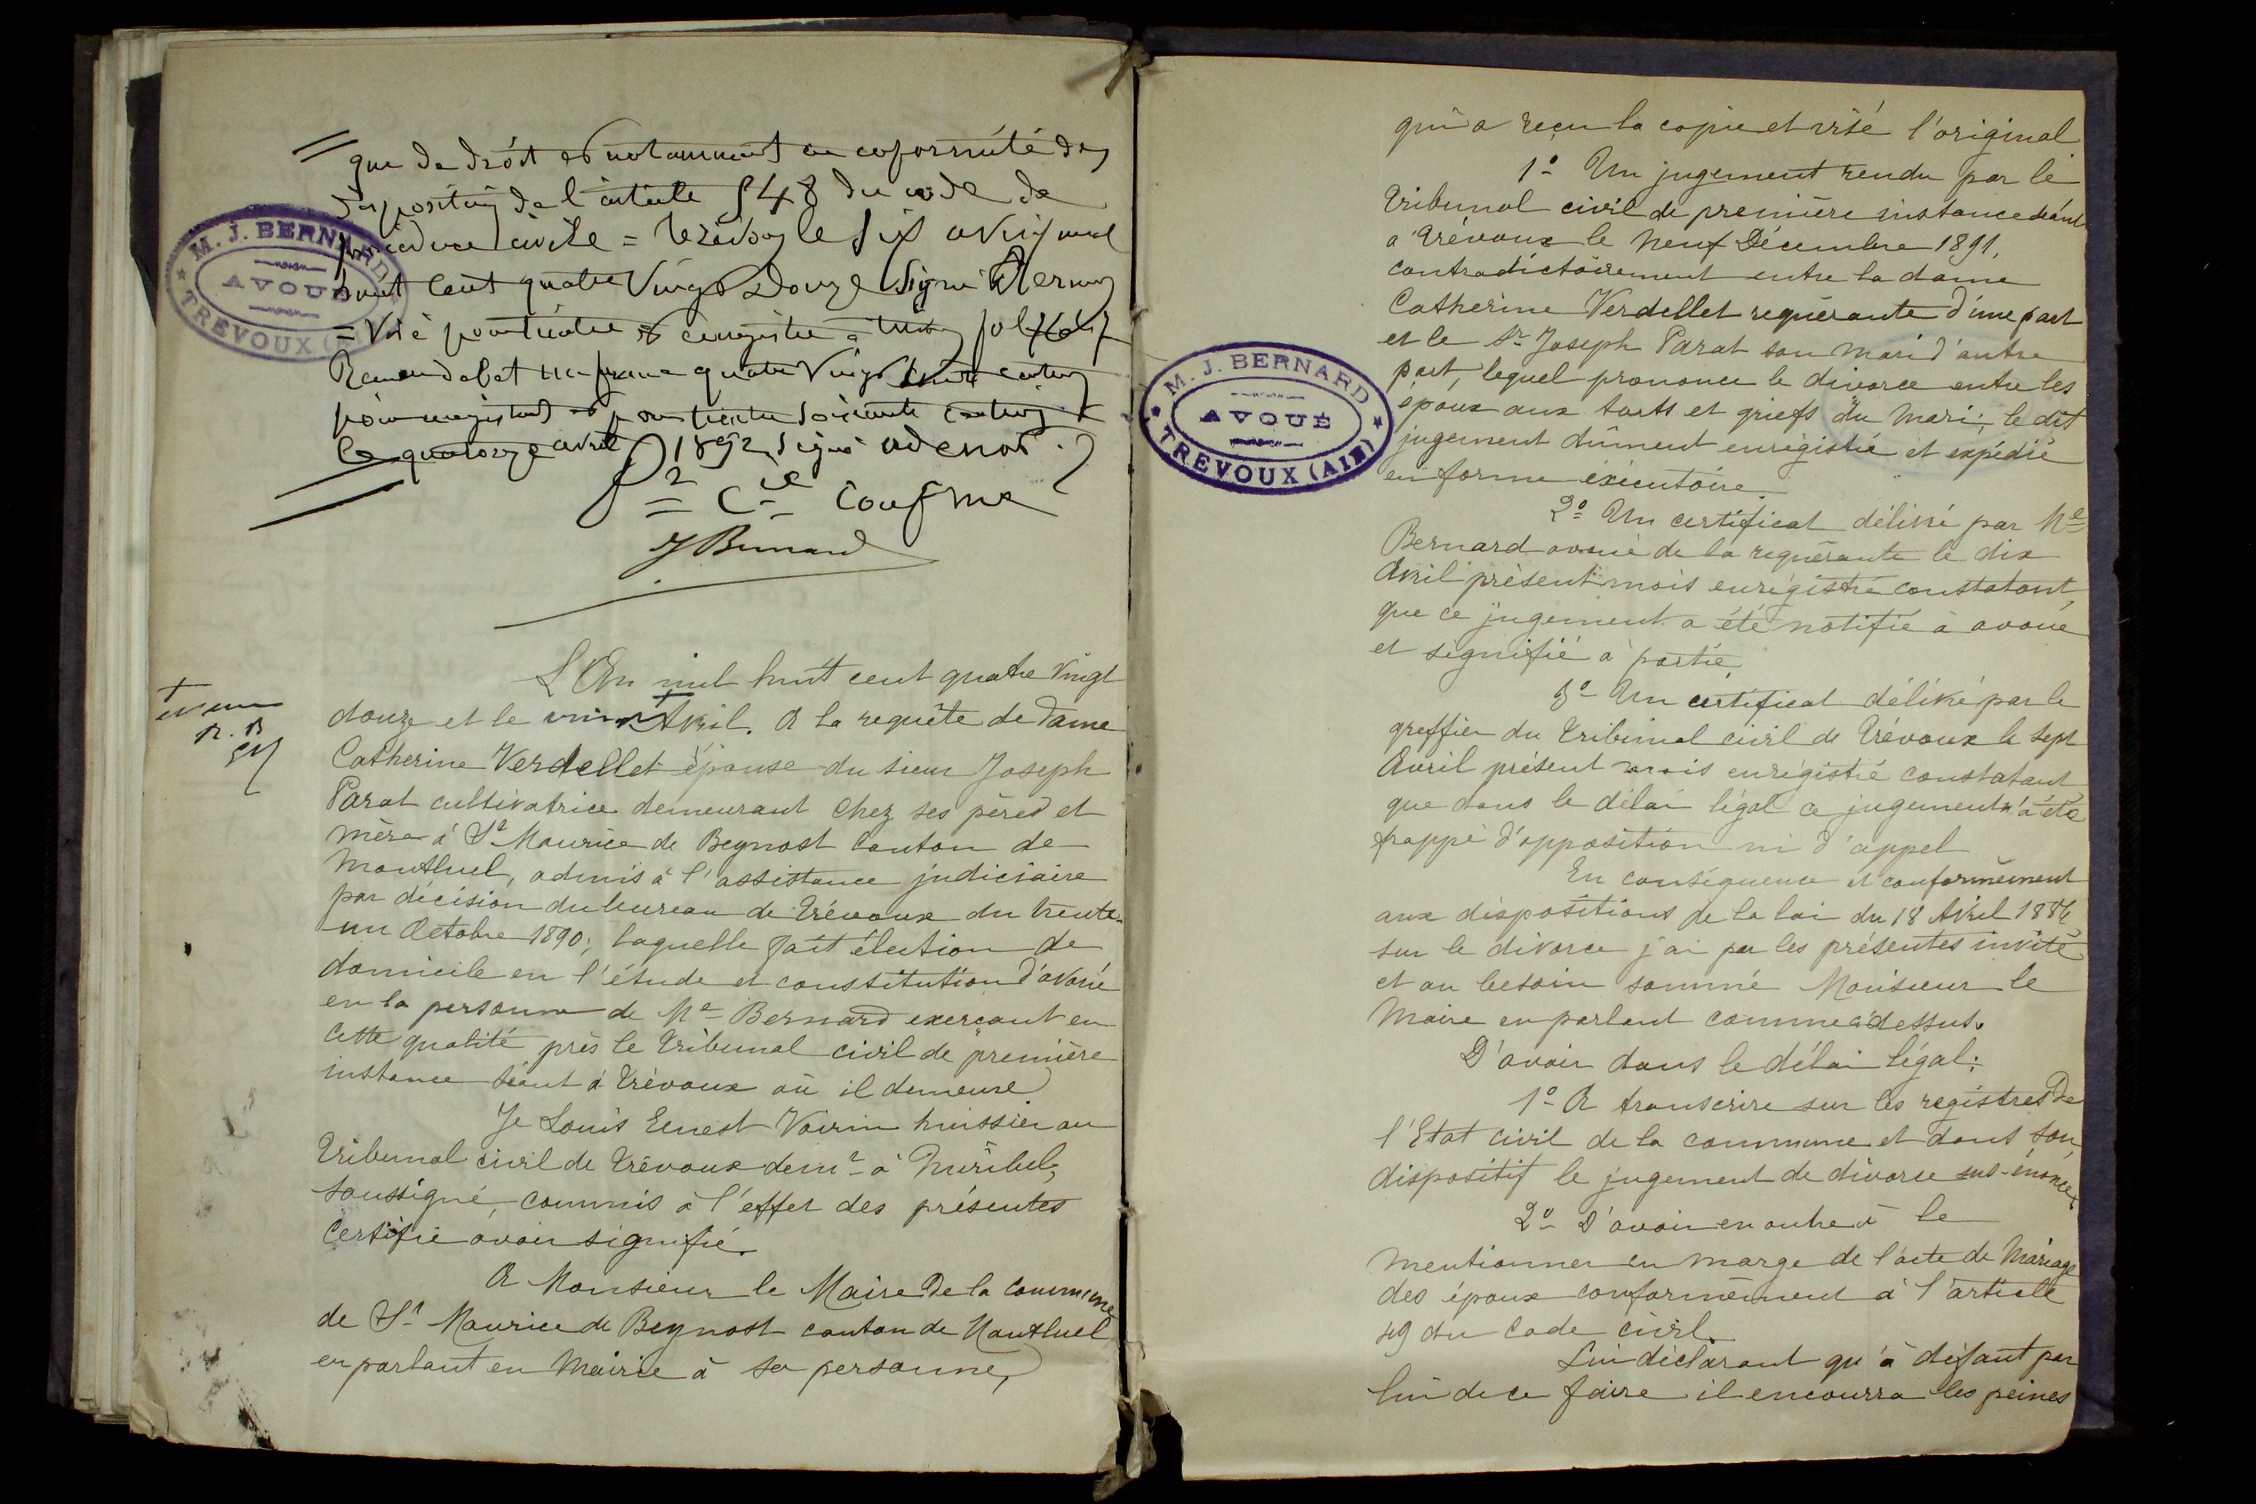 que de droit et notamment en coformité des
dispositions de l'article 548 du code de
procédure civile = Trévoux le six avril mil
huit cent quatre vingt douze signé
= Visé pour timbre et enregistré à Trévoux
franc quatre vingt huit centimes
pour enregistrement et pour timbre soixante centimes
le quatorze avril 1892 signé adenot.
Pr Cie Confme
J Bernard
M. J. BERNARD
AVOUÉ
TREVOUX (AIN)
L'An mil huit cent quatre vingt
douze et le Avril. A la requête de Dame
Catherine Verdellet épouse du sieur Joseph
Parat cultivatrice demeurant chez ses pères et
mère à St Maurice de Beynost Canton de
Montluel, admis à l'assistance judiciaire
par décision du bureau de Trévoux du trente-
un Octobre 1890; laquelle fait élection de
domicile en l'étude et constitution d'avoué
en la personne de Me Bernard exerçant en
cette qualité près le Tribunal civil de première
instance séant à Trévoux où il demeure
Je Louis Ernest Voirin huissier au
Tribunal civil de Trévoux demt à Miribel,
soussigné, commis à l'effet des présentes
Certifie avoir signifié.
A Monsieur le Maire De la Commune
de St Maurice de Beynost canton de Montluel
en parlant en Mairie à sa personne,
qui a reçu la copie et visé l'original
1° Un jugement rendu par le
Tribunal civil de première instance séant
a Trévoux le Neuf Décembre 1891,
contradictoirement entre la dame
Catherine Verdellet requérante d'une part
et le Sr Joseph Parat son mari d'autre
part, lequel prononce le divorce entre les
époux aux torts et griefs du Mari; le dit
jugement dûment enregistré et expédié
en forme exécutoire.
M. J. BERNARD
AVOUÉ
TREVOUX (AIN)
2° Un certificat délivré par Me
Bernard avoué de la requérante le dix
Avril présent mois enregistré constatant,
que ce jugement a été notifié à avoué
et signifié à partie
3° Un certificat délivré par le
greffier du Tribunal civil de Trévoux le sept
Avril présent mois enregistré constatant
que dans le délai légal ce jugement n'a été
frappé d'opposition ni d'appel
En conséquence et conformément
aux dispositions de la loi du 18 Avril 1886
sur le divorce j'ai par les présentes invité
et au besoin sommé Monsieur le
Maire en parlant comme ci dessus.
D'avoir dans le délai légal:
1° A transcrire sur les registres De
l'Etat civil de la commune et dans son
dispositif le jugement de divorce sus-énoncé
2° D'avoir en outre à le
mentionner en marge de l'acte de Mariage
des époux conformément à l'article
49 du Code civil.
Lui déclarant qu'à défaut par
lui de ce faire il encourra les peines